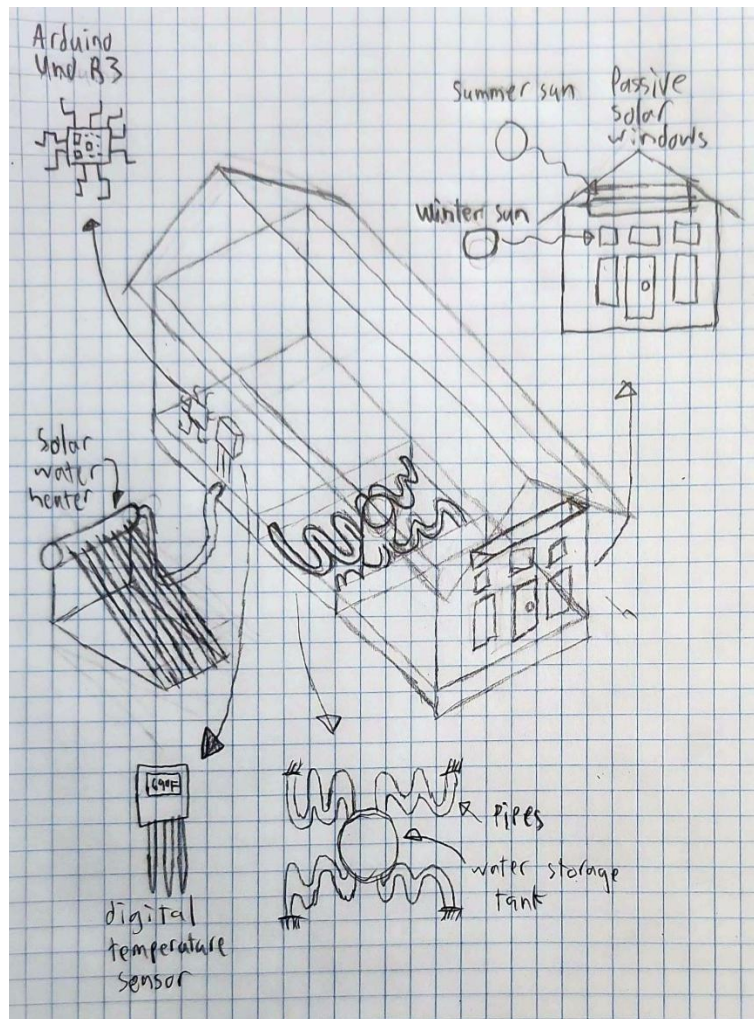 Arduino
Uno R3
Summer sun
Passive
solar
windows
Winter sun
Solar
water
heater
69°F
digital
temperature
sensor
pipes
water storage
tank